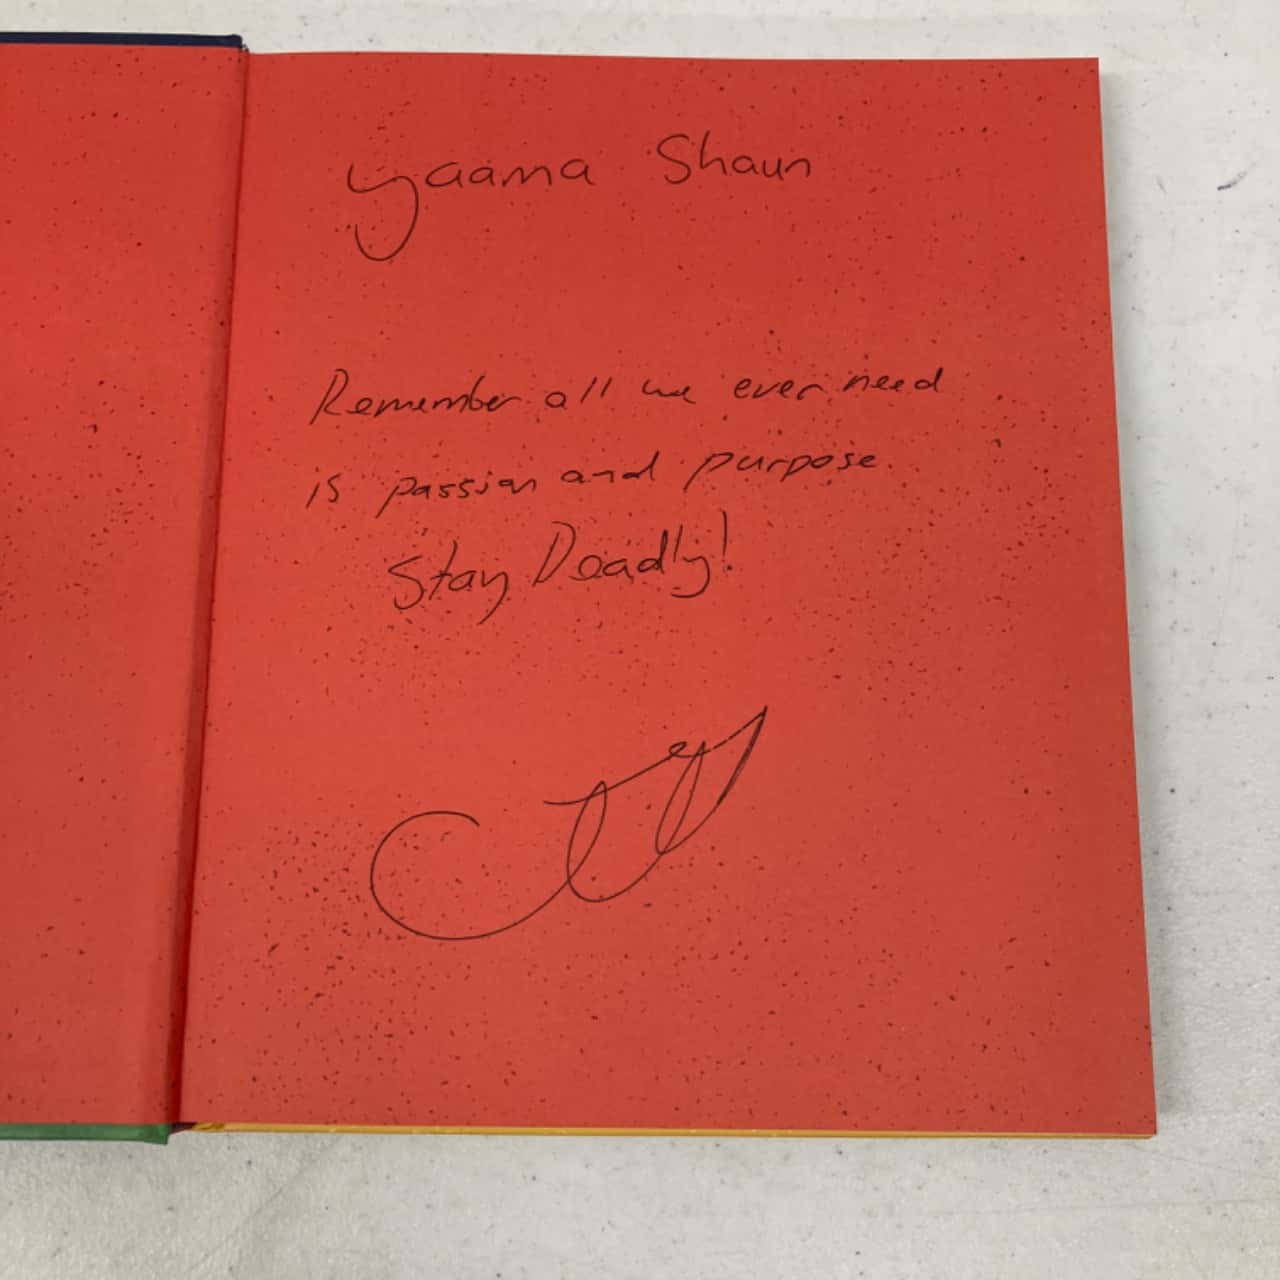 Yaama Shaun
Remember all we ever need
is passion and purpose.
Stay Deadly!